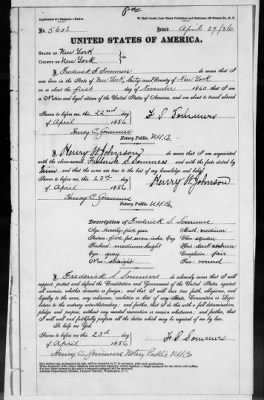 No. 5602 Issued April 29/86
UNITED STATES OF AMERICA.
STATE OF New York
COUNTY OF New York
I, Frederick S. Sommers do swear that I was
born in the State of New York, City and County of New York
on or about the first day of November 1860 that I am
a Native and loyal citizen of the United States of America, and am about to travel abroad
Sworn to before me this 22nd day
of April 1886
F. S. Sommers
Notary Public
I, Henry W Johnson do swear that I am acquainted
with the above-named Frederick S Sommers and with the facts stated by
him and that the same are true to the best of my knowledge and belief
Sworn to before me this 23d day
of April 1886
Henry W Johnson
Notary Public
Description of Frederick S. Sommers
Age: twenty five years
Mouth: medium
Stature: five feet seven inches, Eng.
Chin: square
Forehead: medium height
Eyes: gray
Complexion: fair
Nose: straight
Face: round
I, Frederick S. Sommers do solemnly swear that I will
support, protect and defend the Constitution and Government of the United States against
all enemies, whether domestic or foreign; and that I will bear true faith, allegiance, and
loyalty to the same, any ordinance, resolution or law of any State, Convention or Legis-
lature to the contrary notwithstanding; and further, that I do this with a full determination,
pledge and purpose, without any mental reservation or evasion whatsoever; and further, that
I will well and faithfully perform all the duties which may be required of me by law.
So help me God.
Sworn to before me this 23d day
of April 1886
F. S. Sommers
Notary Public